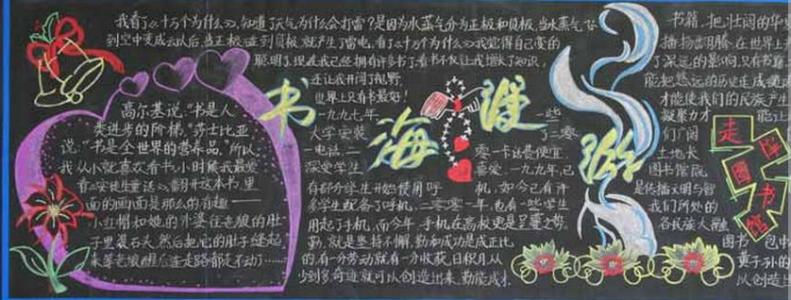 我看了《十万个为什么》，知道了天气为什么会打雷？是因为水蒸气分为正极和负极，当水蒸气飞
到空中变成云以后，当正极碰到负极就产生了雷电。看了《十万个为什么》我觉得自己变的
聪明了，现在我已经拥有许多书了，看书不仅让我增大了知识，
还让我开阔了视野，
世界上只有书最好！
高尔基说：“书是人
类进步的阶梯。”莎士比亚
说：“书是全世界的营养品。”所以
我从小就喜欢看书，小时候我最爱
看《安徒生童话》，翻开这本书，里
面的画面是那么的有趣——
小红帽和她的外婆往老狼的肚
子里装石头，然后把它的肚子缝起
来，等老狼醒后连走路都走不动了……
书海漫游
一九九七年，
大学安装
一电话二
深受学生
有部分学生开始使用呼
多学生配备了呼机，二零零一年，也有一些学生
用起了手机，而今年，手机在高校更是呈蔓之势。
勤，就是坚持不懈，勤和成功是成正比
的，有一分劳动就有一分收获，日积月从
少到多，奇迹就可以创造出来。勤能成才。
一些
了二零
零一卡话费便宜，
喜爱。一九九九年，已
机，如今已有许
书籍，把壮阔的华
播扬
在世界上
了深远的影响，只有书籍
能把悠远的历史连成
才能使我们的民族产生
凝聚力才
们广阔
土地长
图书馆既
是传播文明与智
我们所处的
各民族大融
图书
黄子孙的
可以
走
进
图
书
馆